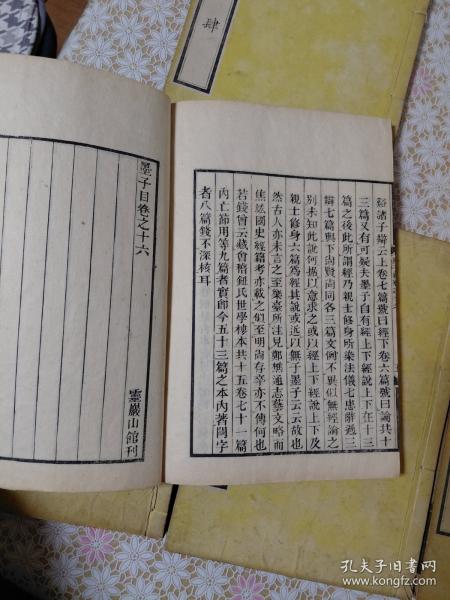 肆
谿諸子辯云上卷七篇號曰經下卷六篇號曰論共十
三篇又有可疑夫墨子自有經上下經說上下在十三
篇之後此所謂經乃親士修身所染法儀七患辭過三
辯七篇與下尚賢尚同各三篇文例不異似無經論之
別未知此說何據以意求之或以經上下經說上下及
親士修身六篇為經其說或近以無子墨子云云故也
然古人亦未言之至樂臺所注見鄭樵通志藝文略而
焦竑國史經籍考亦載之似至明尚存卒亦不傳何也
若錢曾云藏會稽鈕氏世學樓本共十五卷七十一篇
內亡節用等九篇者實即今五十三篇之本內著闕字
者八篇錢不深核耳
墨子目卷之十六
靈巖山館刊
孔夫子旧书网
www.kongfz.com